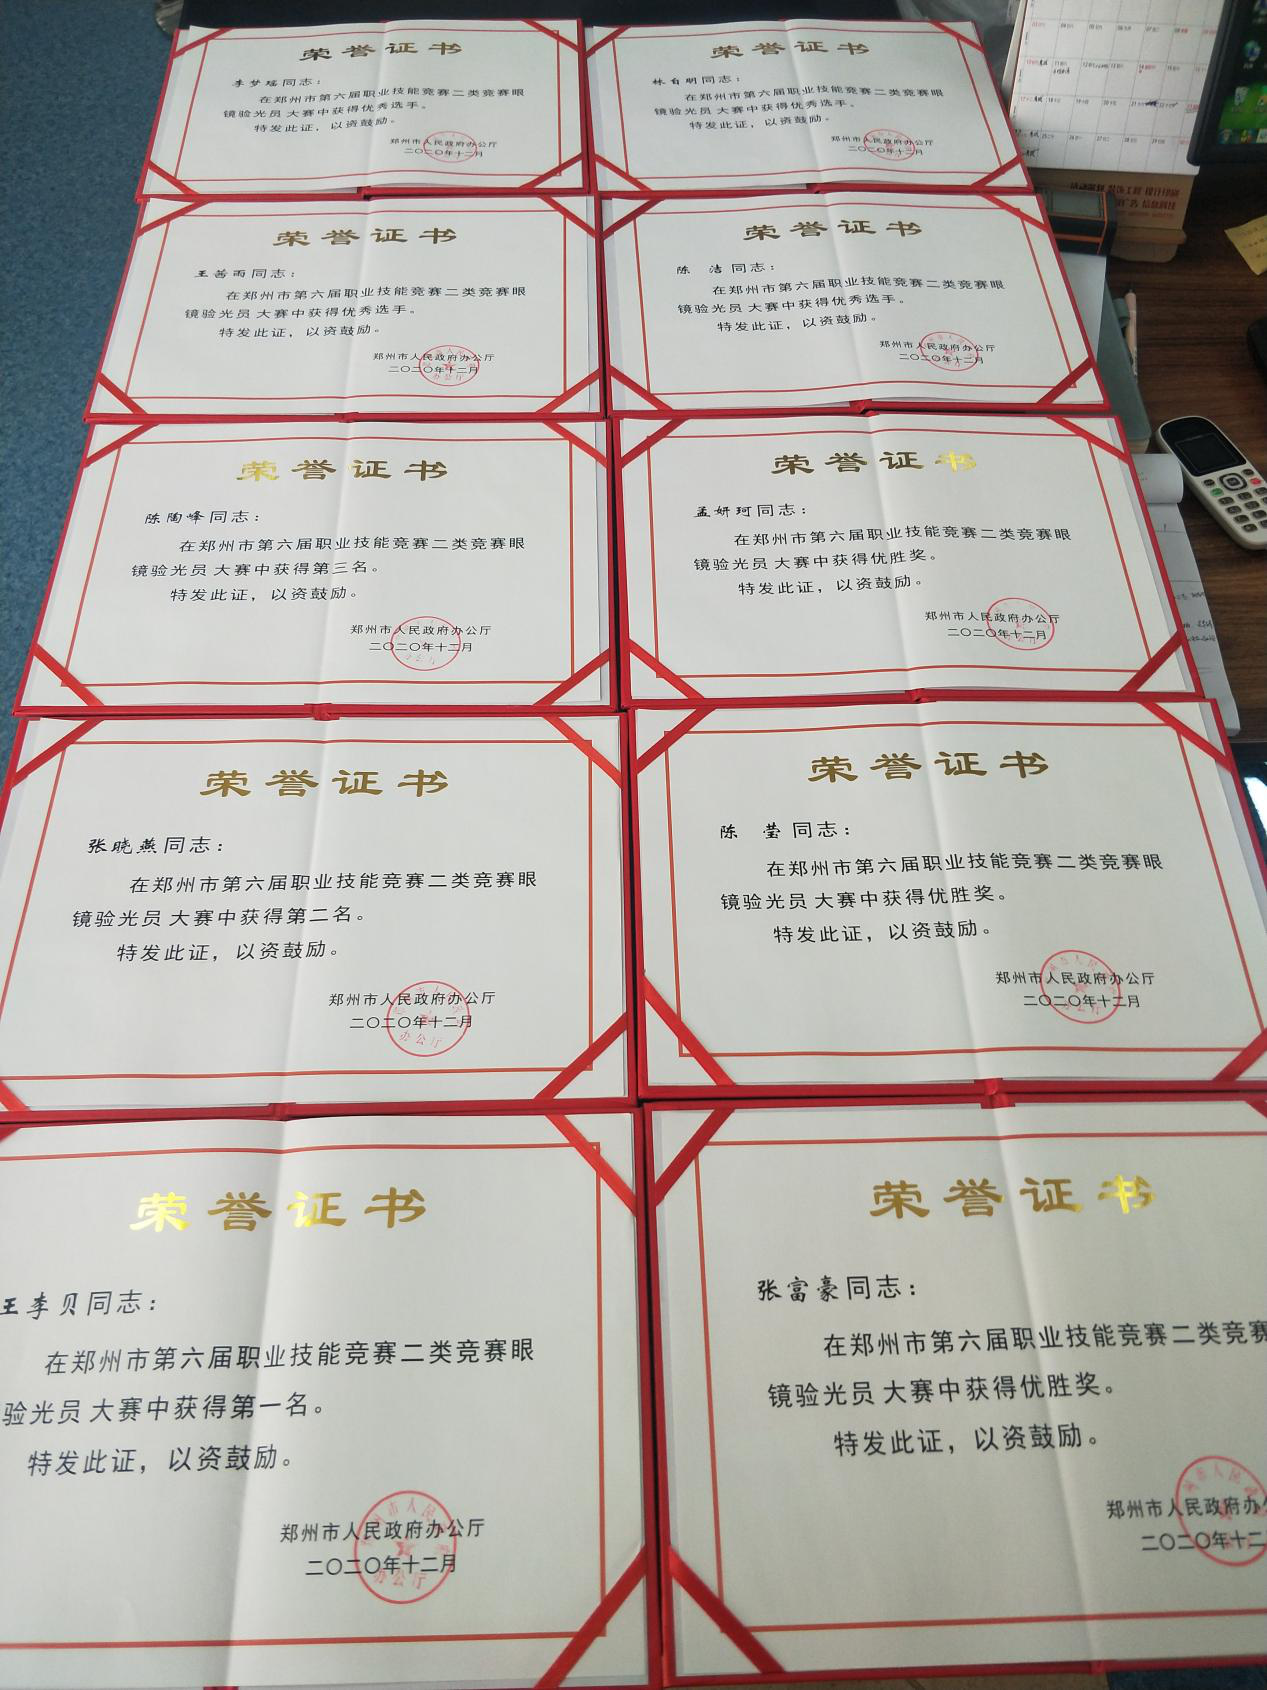 荣誉证书
李梦瑶同志：
在郑州市第六届职业技能竞赛二类竞赛眼
镜验光员 大赛中获得优秀选手。
特发此证，以资鼓励。
郑州市人民政府办公厅
二〇二〇年十二月
荣誉证书
林自明同志：
在郑州市第六届职业技能竞赛二类竞赛眼
镜验光员 大赛中获得优秀选手。
特发此证，以资鼓励。
郑州市人民政府办公厅
二〇二〇年十二月
荣誉证书
王善雨同志：
在郑州市第六届职业技能竞赛二类竞赛眼
镜验光员 大赛中获得优秀选手。
特发此证，以资鼓励。
郑州市人民政府办公厅
二〇二〇年十二月
办公厅
荣誉证书
陈 洁 同志：
在郑州市第六届职业技能竞赛二类竞赛眼
镜验光员 大赛中获得优秀选手。
特发此证，以资鼓励。
郑州市人民政府办公厅
二〇二〇年十二月
荣誉证书
陈陶峰同志：
在郑州市第六届职业技能竞赛二类竞赛眼
镜验光员 大赛中获得第三名。
特发此证，以资鼓励。
郑州市人民政府办公厅
二〇二〇年十二月
荣誉证书
孟妍珂同志：
在郑州市第六届职业技能竞赛二类竞赛眼
镜验光员 大赛中获得优胜奖。
特发此证，以资鼓励。
郑州市人民政府办公厅
二〇二〇年十二月
荣誉证书
张晓燕同志：
在郑州市第六届职业技能竞赛二类竞赛眼
镜验光员 大赛中获得第二名。
特发此证，以资鼓励。
郑州市人民政府办公厅
二〇二〇年十二月
办公厅
荣誉证书
陈 莹 同志：
在郑州市第六届职业技能竞赛二类竞赛眼
镜验光员 大赛中获得优胜奖。
特发此证，以资鼓励。
郑州市人民政府办公厅
二〇二〇年十二月
办公厅
荣誉证书
王李贝同志：
在郑州市第六届职业技能竞赛二类竞赛眼
验光员 大赛中获得第一名。
特发此证，以资鼓励。
郑州市人民政府办公厅
二〇二〇年十二月
办公厅
荣誉证书
张富豪同志：
在郑州市第六届职业技能竞赛二类竞赛
镜验光员 大赛中获得优胜奖。
特发此证，以资鼓励。
郑州市人民政府办
二〇二〇年十二